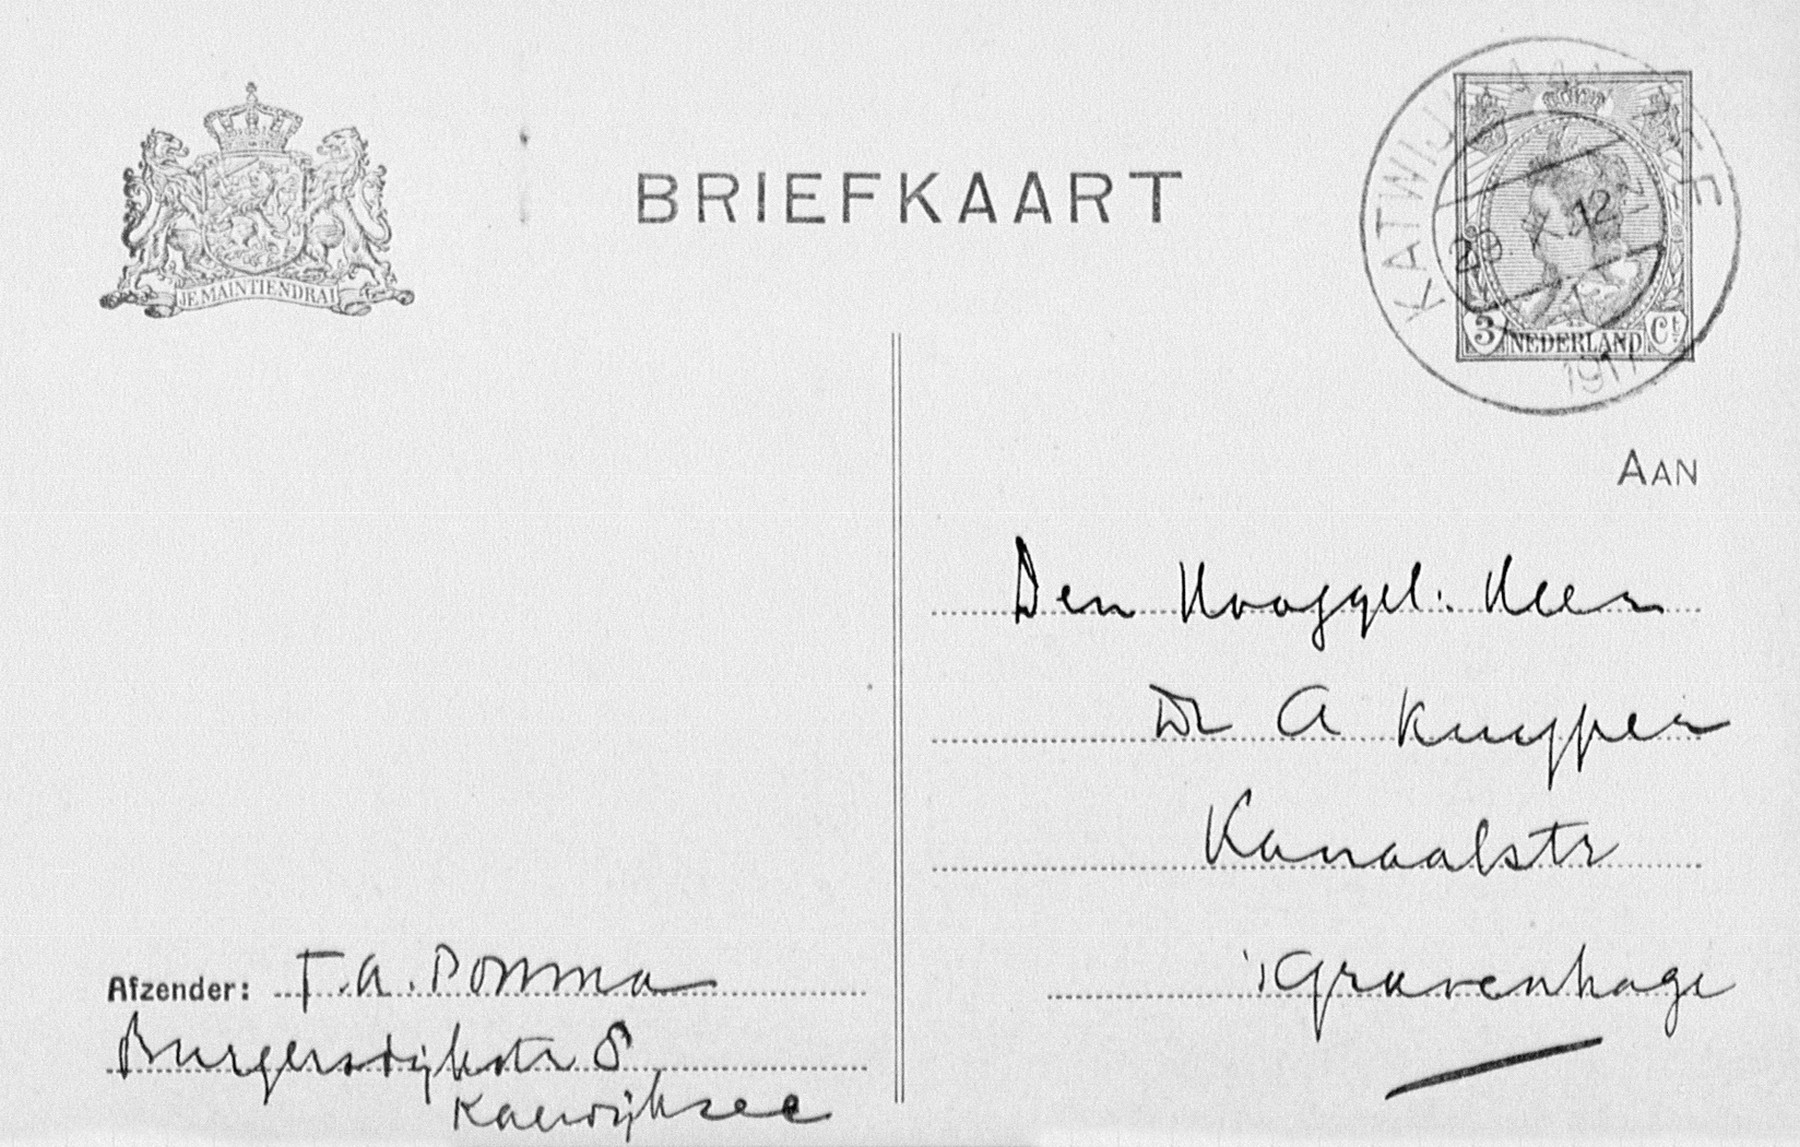 JE MAINTIENDRAI
BRIEFKAART
KATWIJK AAN ZEE
29 X 12
1917
3 NEDERLAND Ct
AAN
Den Hooggel: Heer
Dr A Kuyper
Kanaalstr
's Gravenhage
Afzender: T. A. Pomma
Burgersdijkstr 8
Katwijkzee